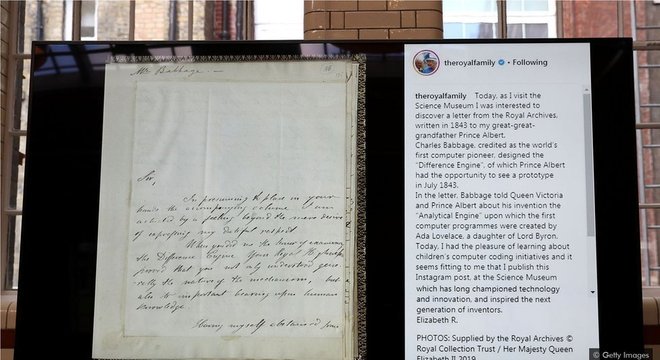 Mr Babbage
Sir,
In presuming to place in your
hands the accompanying volume I am
actuated by a feeling beyond the mere desire
of expressing my dutiful respect.
When you did me the honor of examining
the Difference Engine Your Royal Highness
proved that you not only understood gene-
rally the nature of the mechanism, but
also its important bearing upon human
knowledge.
Having myself obtained from
theroyalfamily • Following
theroyalfamily Today, as I visit the
Science Museum I was interested to
discover a letter from the Royal Archives,
written in 1843 to my great-great-
grandfather Prince Albert.
Charles Babbage, credited as the world's
first computer pioneer, designed the
"Difference Engine", of which Prince Albert
had the opportunity to see a prototype
in July 1843.
In the letter, Babbage told Queen Victoria
and Prince Albert about his invention the
"Analytical Engine" upon which the first
computer programmes were created by
Ada Lovelace, a daughter of Lord Byron.
Today, I had the pleasure of learning about
children's computer coding initiatives and it
seems fitting to me that I publish this
Instagram post, at the Science Museum
which has long championed technology
and innovation, and inspired the next
generation of inventors.
Elizabeth R.
PHOTOS: Supplied by the Royal Archives ©
Royal Collection Trust / Her Majesty Queen
Elizabeth II 2019
© Getty Images